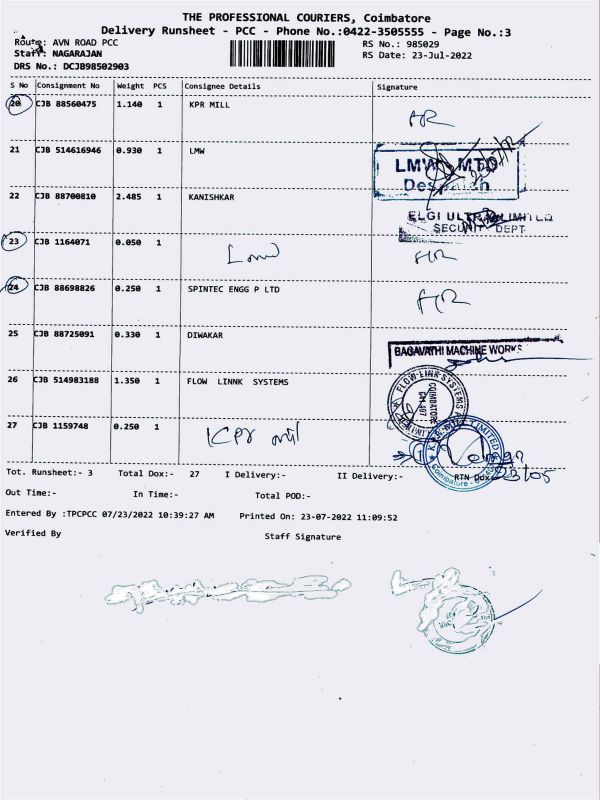 THE PROFESSIONAL COURIERS, Coimbatore
Delivery Runsheet - PCC - Phone No.:0422-3505555 - Page No.:3
Route: AVN ROAD PCC
RS No.: 985029
Staff: NAGARAJAN
RS Date: 23-Jul-2022
DRS No.: DCJB98502903
S No Consignment No Weight PCS Consignee Details Signature
20 CJB 88560475 1.140 1 KPR MILL
21 CJB 514616946 0.930 1 LMW
LMW MTD
Despatch
22 CJB 88700810 2.485 1 KANISHKAR
ELGI ULTRA LIMITED
SECURITY DEPT
23 CJB 1164071 0.050 1
24 CJB 88698826 0.250 1 SPINTEC ENGG P LTD
25 CJB 88725091 0.330 1 DIWAKAR
BAGAVATHI MACHINE WORKS
26 CJB 514983188 1.350 1 FLOW LINNK SYSTEMS
FLOW LINK SYSTEMS
COIMBATORE
27 CJB 1159748 0.250 1 KPR mill
K.P.R. MILL LIMITED
Coimbatore
Tot. Runsheet:- 3 Total Dox:- 27 I Delivery:- II Delivery:- RTN Dox
Out Time:- In Time:- Total POD:-
Entered By :TPCPCC 07/23/2022 10:39:27 AM Printed On: 23-07-2022 11:09:52
Verified By Staff Signature